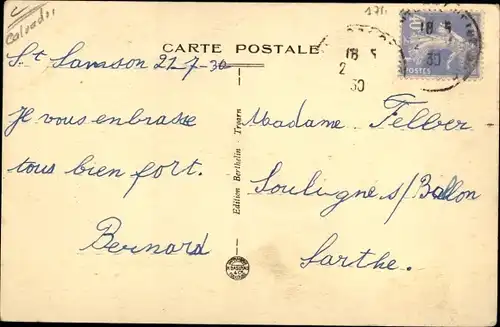 Calvador
CARTE POSTALE
St Samson 21-7-30
Je vous enbrasse
tous bien fort.
Bernard
Edition Berthelin Troarn
Madame Felber
Souligne s/ Ballon
Sarthe.
18 5
2
30
18 5
2
30
40
POSTES